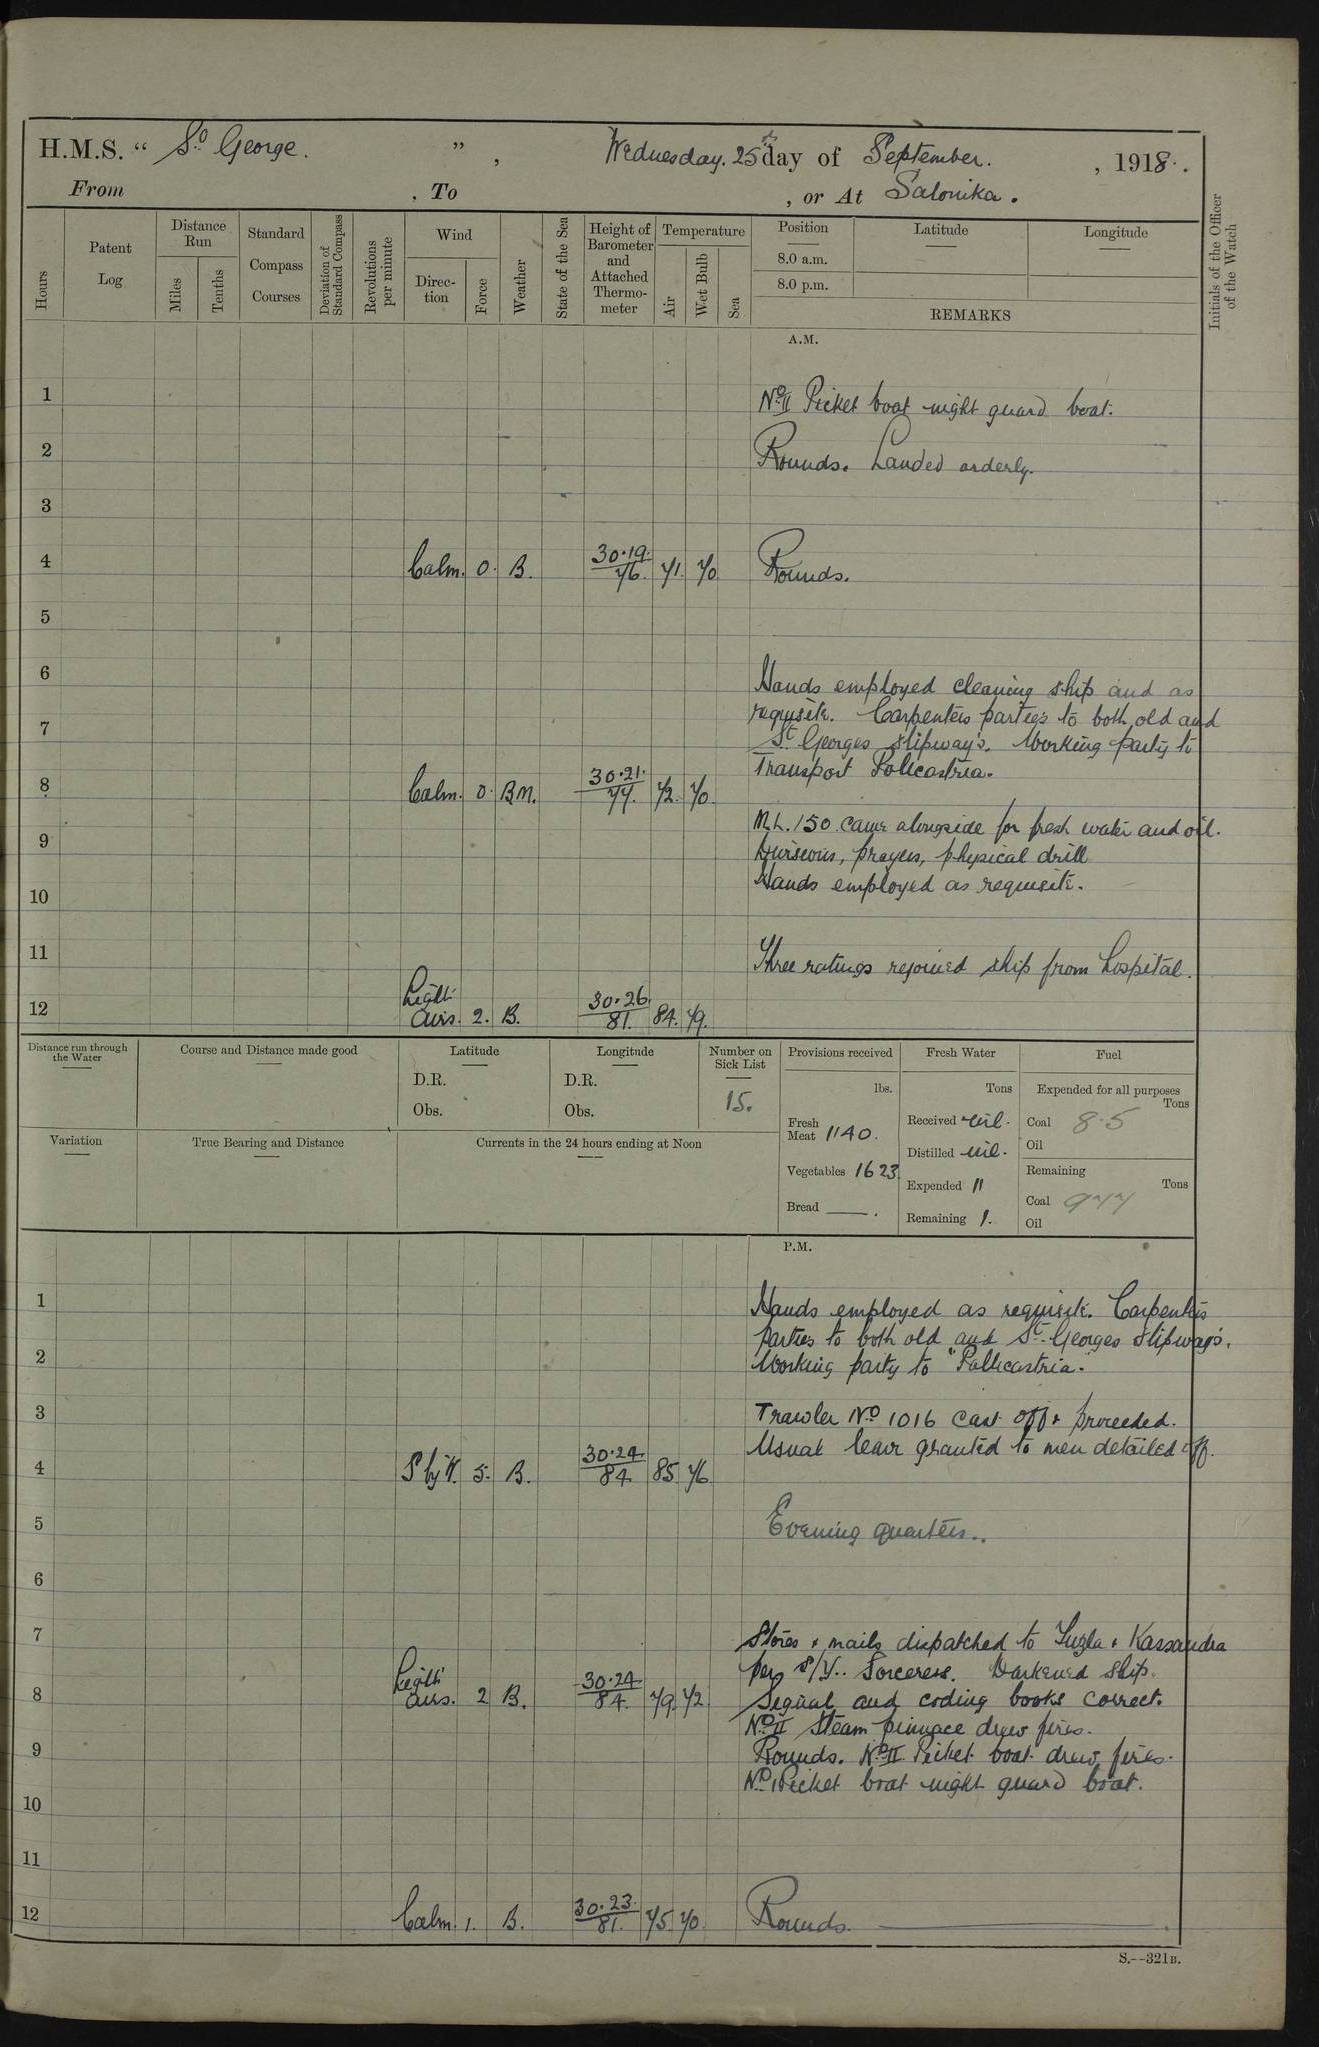 H.M.S. “ St. George. ” , Wednesday. 25th day of September. , 1918.
From , To , or At Salonika.
Hours
Patent Log
Distance Run
Miles
Tenths
Standard Compass Courses
Deviation of Standard Compass
Revolutions per minute
Wind
Direc-tion
Force
Weather
State of the Sea
Height of Barometer and Attached Thermo-meter
Temperature
Air
Wet Bulb
Sea
Position
8.0 a.m.
8.0 p.m.
Latitude
Longitude
REMARKS
Initials of the Officer of the Watch
A.M.
1 No. II Picket boat night guard boat.
2 Rounds. Landed orderly.
3
4 Calm. 0. B. 30.19. 76. 71. 70 Rounds.
5
6 Hands employed cleaning ship and as
requisite. Carpenters parties to both old and
7 St. Georges slipway's. Working party to
Transport Policastria.
8 Calm. 0. B.M. 30.21. 77. 72. 70.
M.L. 150 came alongside for fresh water and oil.
9 Divisions, prayers, physical drill
Hands employed as requisite.
10
11 Three ratings rejoined ship from hospital.
12 Light airs. 2. B. 30.26 81. 84. 79.
Distance run through the Water
Course and Distance made good
Latitude
D.R.
Obs.
Longitude
D.R.
Obs.
Number on Sick List
15.
Provisions received
lbs.
Fresh Meat 1140.
Vegetables 1623.
Bread —.
Fresh Water
Tons
Received nil.
Distilled nil.
Expended 11
Remaining 1.
Fuel
Expended for all purposes
Tons
Coal 8.5
Oil
Remaining
Tons
Coal 977
Oil
Variation
True Bearing and Distance
Currents in the 24 hours ending at Noon
P.M.
1 Hands employed as requisite. Carpenters
parties to both old and St. Georges slipways.
2 Working party to "Pollicastria.
3 Trawler No. 1016 cast off & proceeded.
Usual leave granted to men detailed off.
4 S by W. 5. B. 30.24 84 85. 76
5 Evening quarters..
6
7 Stores & mails dispatched to Tuzla & Kassandra
per S/Y.. Sorceress. Darkened ship.
8 Light airs. 2 B. 30.24 84. 79. 72 Signal and coding books correct.
No. II Steam pinnace drew fires.
9 Rounds. No. II Picket boat drew fires.
No. 1 Picket boat night guard boat.
10
11
12 Calm. 1. B. 30.23. 81. 75 70. Rounds.
S.--321B.